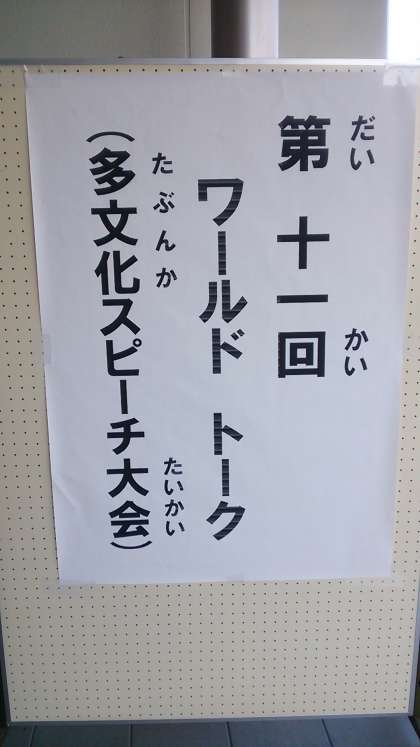 だい かい
第 十一回
ワールド トーク
たぶんか たいかい
(多文化スピーチ大会)